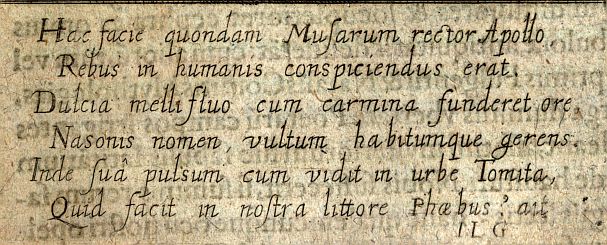 Hac facie quondam Musarum rector Apollo
Rebus in humanis conspiciendus erat.
Dulcia mellifluo cum carmina funderet ore,
Nasonis nomen, vultum habitumque gerens.
Inde suâ pulsum cum vidit in urbe Tomita,
Quid facit in nostra littore Phœbus? ait
I L G